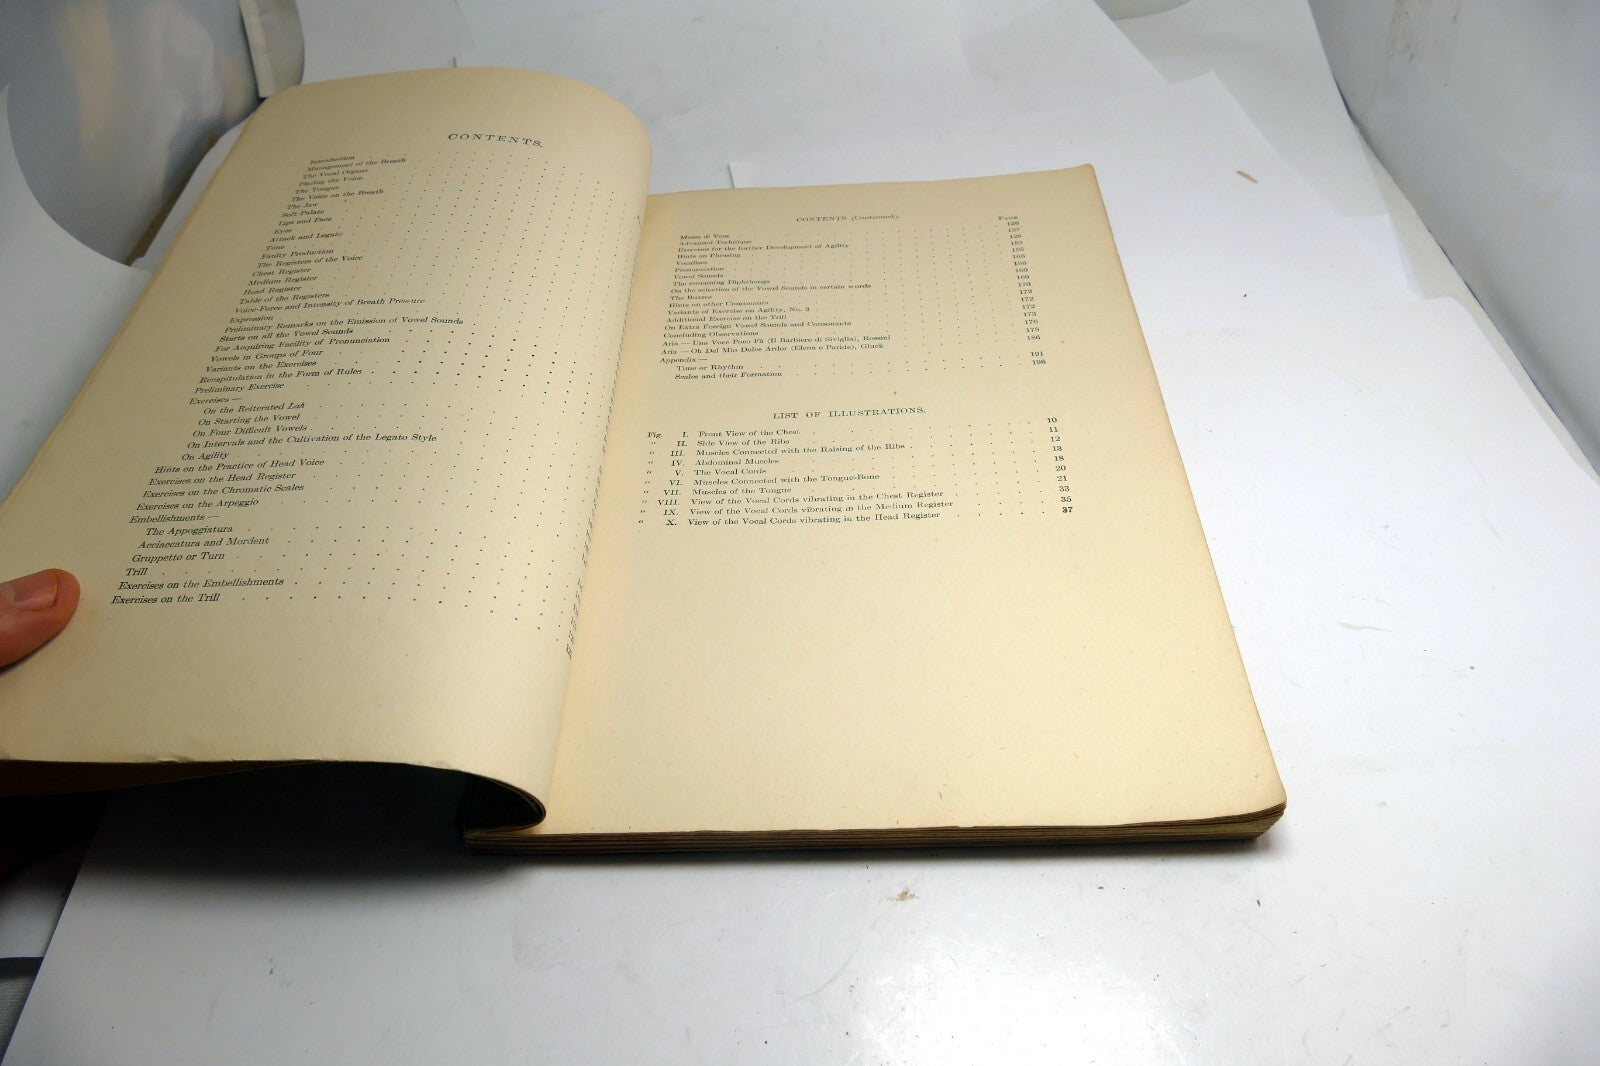 CONTENTS.
Introduction
Management of the Breath
The Vocal Organs
Placing the Voice
The Tongue
The Voice on the Breath
The Jaw
Soft Palate
Lips and Face
Eyes
Attack and Legato
Tone
Faulty Production
The Registers of the Voice
Chest Register
Medium Register
Head Register
Table of the Registers
Voice-Force and Intensity of Breath Pressure
Expression
Preliminary Remarks on the Emission of Vowel Sounds
Starts on all the Vowel Sounds
For Acquiring Facility of Pronunciation
Vowels in Groups of Four
Variants on the Exercises
Recapitulation in the Form of Rules
Preliminary Exercise
Exercises —
On the Reiterated Lah
On Starting the Vowel
On Four Difficult Vowels
On Intervals and the Cultivation of the Legato Style
On Agility
Hints on the Practice of Head Voice
Exercises on the Head Register
Exercises on the Chromatic Scales
Exercises on the Arpeggio
Embellishments —
The Appoggiatura
Acciaccatura and Mordent
Gruppetto or Turn
Trill
Exercises on the Embellishments
Exercises on the Trill
CONTENTS (Continued).
PAGE
Messa di Voce
Advanced Technique
Exercises for the further Development of Agility
Hints on Phrasing
Vocalises
Pronunciation
Vowel Sounds
The remaining Diphthongs
On the selection of the Vowel Sounds in certain words
The Buzzes
Hints on other Consonants
Variants of Exercise on Agility, No. 3
Additional Exercise on the Trill
On Extra Foreign Vowel Sounds and Consonants
Concluding Observations
Aria — Una Voce Poco Fà (Il Barbiere di Siviglia), Rossini 178
Aria — Oh Del Mio Dolce Ardor (Elena e Paride), Gluck 186
Appendix —
Time or Rhythm 191
Scales and their Formation 196
LIST OF ILLUSTRATIONS.
Fig. I. Front View of the Chest 10
" II. Side View of the Ribs 11
" III. Muscles Connected with the Raising of the Ribs 12
" IV. Abdominal Muscles 13
" V. The Vocal Cords 18
" VI. Muscles Connected with the Tongue-Bone 20
" VII. Muscles of the Tongue 21
" VIII. View of the Vocal Cords vibrating in the Chest Register 33
" IX. View of the Vocal Cords vibrating in the Medium Register 35
" X. View of the Vocal Cords vibrating in the Head Register 37